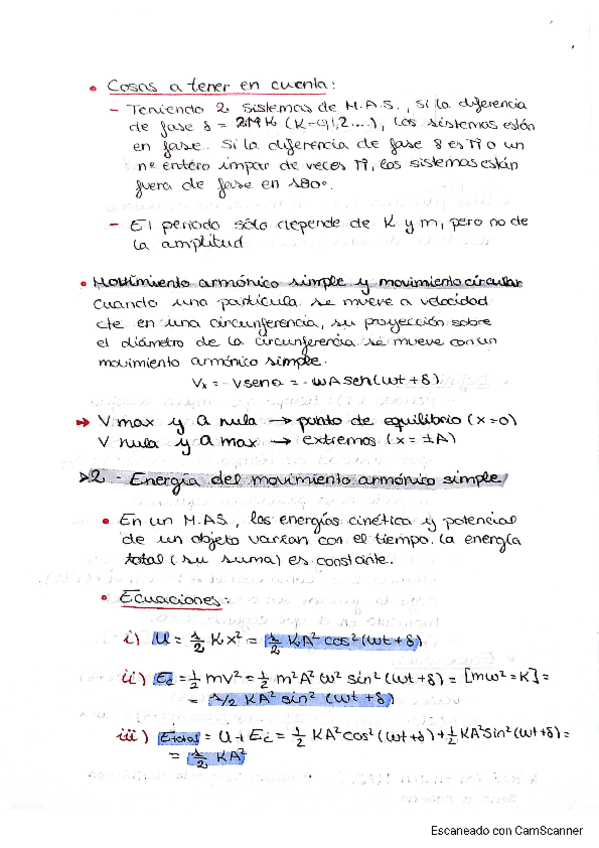 • Cosas a tener en cuenta:
– Teniendo 2 sistemas de M.A.S., si la diferencia
de fase δ = 2πK (K=0,1,2....), los sistemas están
en fase. Si la diferencia de fase δ es π o un
nº entero impar de veces π, los sistemas están
fuera de fase en 180º.
– El periodo sólo depende de K y m, pero no de
la amplitud
• Movimiento armónico simple y movimiento circular
Cuando una partícula se mueve a velocidad
cte en una circunferencia, su proyección sobre
el diámetro de la circunferencia se mueve con un
movimiento armónico simple.
Vx = -Vsenθ = -ωAsen(ωt + δ)
→ V max y a nula → punto de equilibrio (x=0)
V nula y a max → extremos (x = ±A)
>2 - Energía del movimiento armónico simple
• En un M.AS., las energías cinética y potencial
de un objeto varían con el tiempo. La energía
total (su suma) es constante.
• Ecuaciones:
i) U = 1/2 Kx² = 1/2 KA² cos² (ωt + δ)
ii) Ec = 1/2 mv² = 1/2 m²A² ω² sin² (ωt + δ) = [mω² = K] =
= 1/2 KA² sin² (ωt + δ)
iii) Etotal = U + Ec = 1/2 KA² cos² (ωt + δ) + 1/2 KA² sin² (ωt + δ) =
= 1/2 KA²
Escaneado con CamScanner